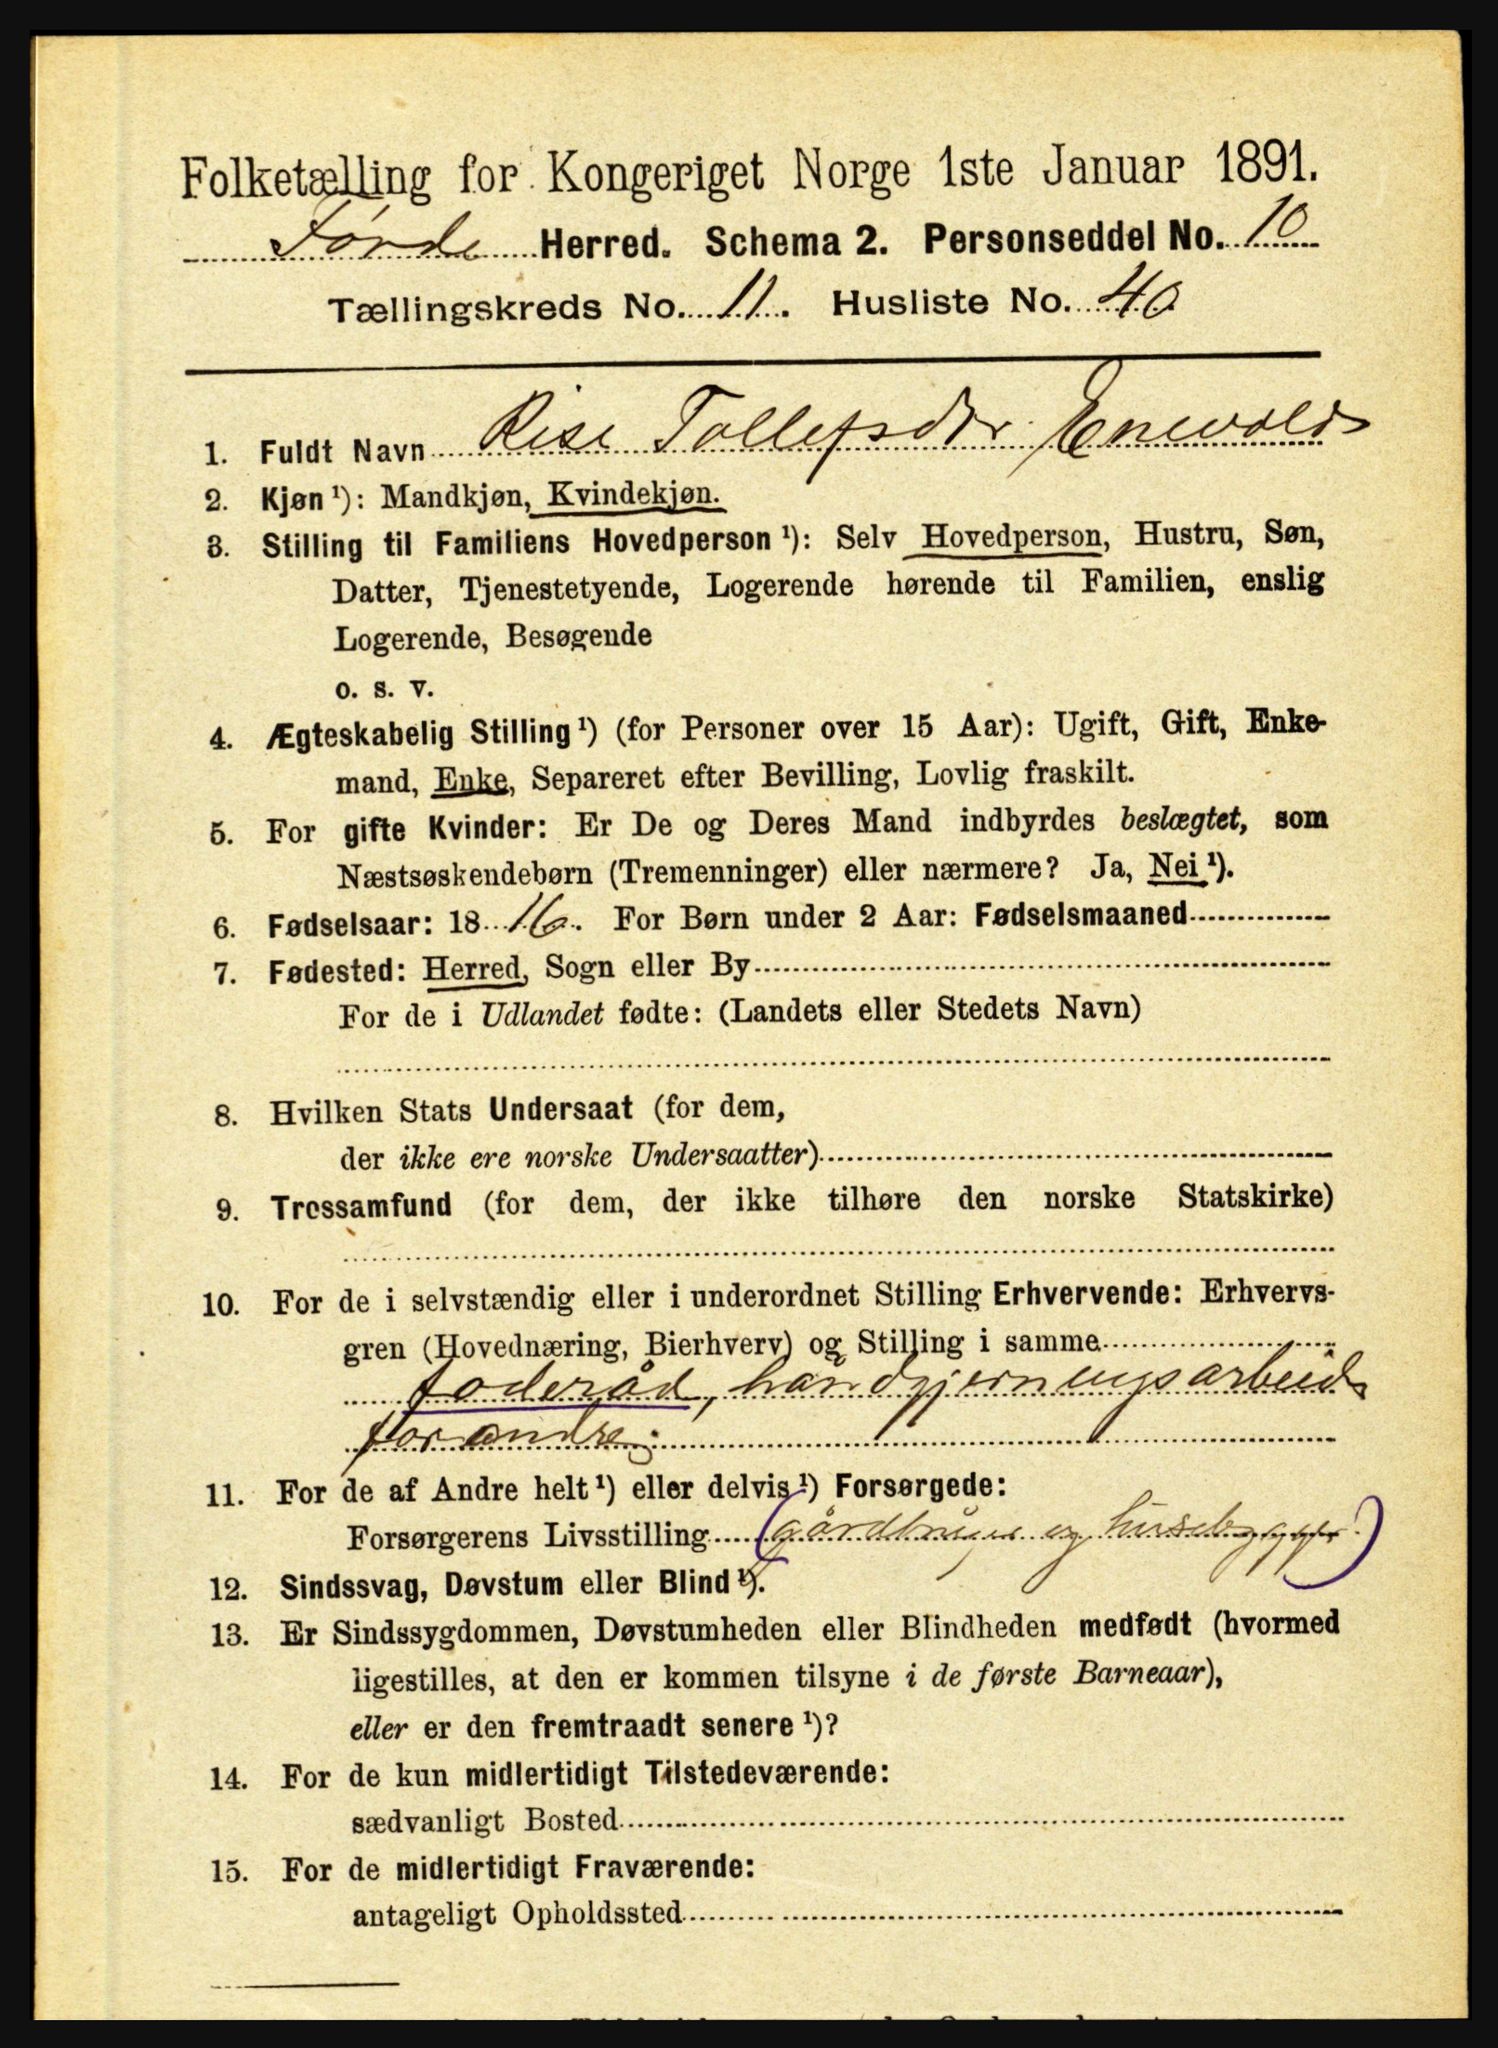 Folketælling for Kongeriget Norge 1ste Januar 1891.
Førde Herred. Schema 2. Personseddel No. 10
Tællingskreds No. 11. Husliste No. 40
1. Fuldt Navn Rise Tollefsdtr Enevolds
2. Kjøn ¹): Mandkjøn, Kvindekjøn.
3. Stilling til Familiens Hovedperson ¹): Selv Hovedperson, Hustru, Søn,
Datter, Tjenestetyende, Logerende hørende til Familien, enslig
Logerende, Besøgende
o. s. v.
4. Ægteskabelig Stilling ¹) (for Personer over 15 Aar): Ugift, Gift, Enke-
mand, Enke, Separeret efter Bevilling, Lovlig fraskilt.
5. For gifte Kvinder: Er De og Deres Mand indbyrdes beslægtet, som
Næstsøskendebørn (Tremenninger) eller nærmere? Ja, Nei ¹).
6. Fødselsaar: 1816. For Børn under 2 Aar: Fødselsmaaned
7. Fødested: Herred, Sogn eller By
For de i Udlandet fødte: (Landets eller Stedets Navn)
8. Hvilken Stats Undersaat (for dem,
der ikke ere norske Undersaatter)
9. Trossamfund (for dem, der ikke tilhøre den norske Statskirke)
10. For de i selvstændig eller i underordnet Stilling Erhvervende: Erhvervs-
gren (Hovednæring, Bierhverv) og Stilling i samme
foderåd, håndgjerningsarbeide
for andre.
11. For de af Andre helt ¹) eller delvis ¹) Forsørgede:
Forsørgerens Livsstilling (gårdbruger og husebygger.)
12. Sindssvag, Døvstum eller Blind ¹).
13. Er Sindssygdommen, Døvstumheden eller Blindheden medfødt (hvormed
ligestilles, at den er kommen tilsyne i de første Barneaar),
eller er den fremtraadt senere ¹)?
14. For de kun midlertidigt Tilstedeværende:
sædvanligt Bosted
15. For de midlertidigt Fraværende:
antageligt Opholdssted